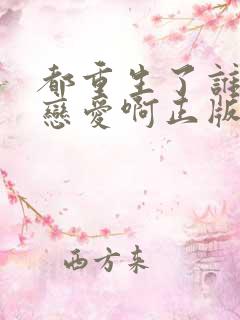 都重生了誰
戀愛啊正版
西方來